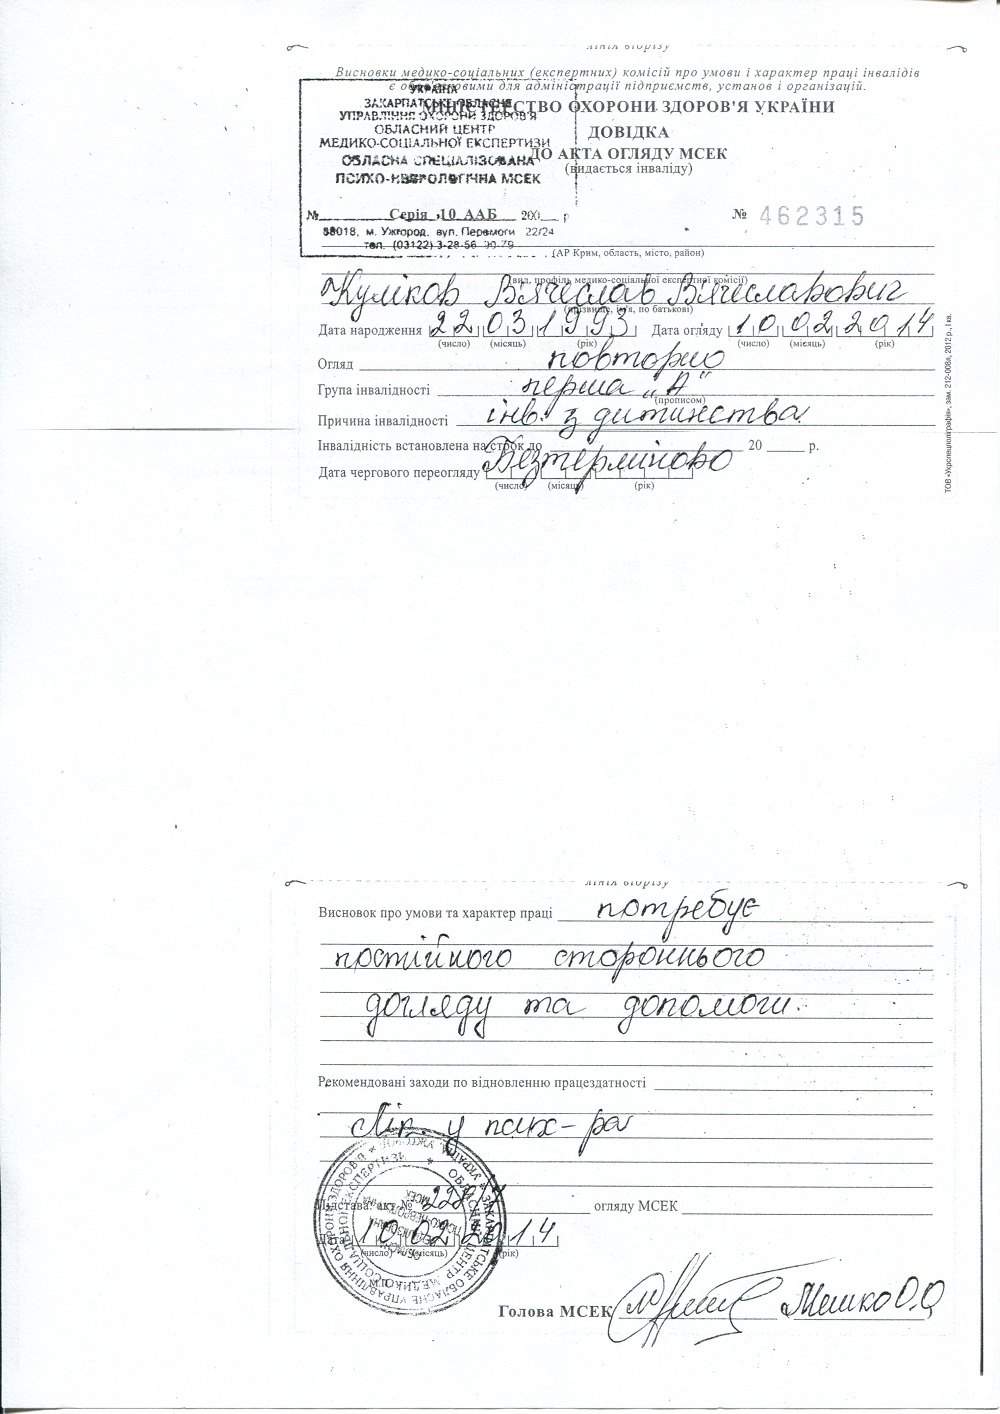 лінія відрізу
Висновки медико-соціальних (експертних) комісій про умови і характер праці інвалідів
є обов'язковими для адміністрації підприємств, установ і організацій.
МІНІСТЕРСТВО ОХОРОНИ ЗДОРОВ'Я УКРАЇНИ
ДОВІДКА
ДО АКТА ОГЛЯДУ МСЕК
(видається інваліду)
УКРАЇНА
ЗАКАРПАТСЬКЕ ОБЛАСНЕ
УПРАВЛІННЯ ОХОРОНИ ЗДОРОВ'Я
ОБЛАСНИЙ ЦЕНТР
МЕДИКО-СОЦІАЛЬНОЇ ЕКСПЕРТИЗИ
ОБЛАСНА СПЕЦІАЛІЗОВАНА
ПСИХО-НЕВРОЛОГІЧНА МСЕК
№ Серія 10 ААБ 200 р
88018, м. Ужгород, вул. Перемоги 22/24
тел. (03122) 3-28-56
№ 462315
(АР Крим, область, місто, район)
(вид, профіль медико-соціальної експертної комісії)
Куліков Вячеслав Вячеславович
(прізвище, ім'я, по батькові)
Дата народження 22 03 1993 Дата огляду 10 02 2014
(число) (місяць) (рік) (число) (місяць) (рік)
Огляд повторно
Група інвалідності перша "А"
(прописом)
Причина інвалідності інв. з дитинства
Інвалідність встановлена на строк до 20 р.
Безтерміново
Дата чергового переогляду
(число) (місяць) (рік)
ТОВ «Укрспецполіграфія», зам. 212-008л, 2012 р., I кв.
лінія відрізу
Висновок про умови та характер праці потребує
постійного стороннього
догляду та допомоги.
Рекомендовані заходи по відновленню працездатності
Лік. у псих-ра
Підстава: акт № 228 огляду МСЕК
Дата 10 02 2014
(число) (місяць) (рік)
М.П.
Голова МСЕК Мешко О.О